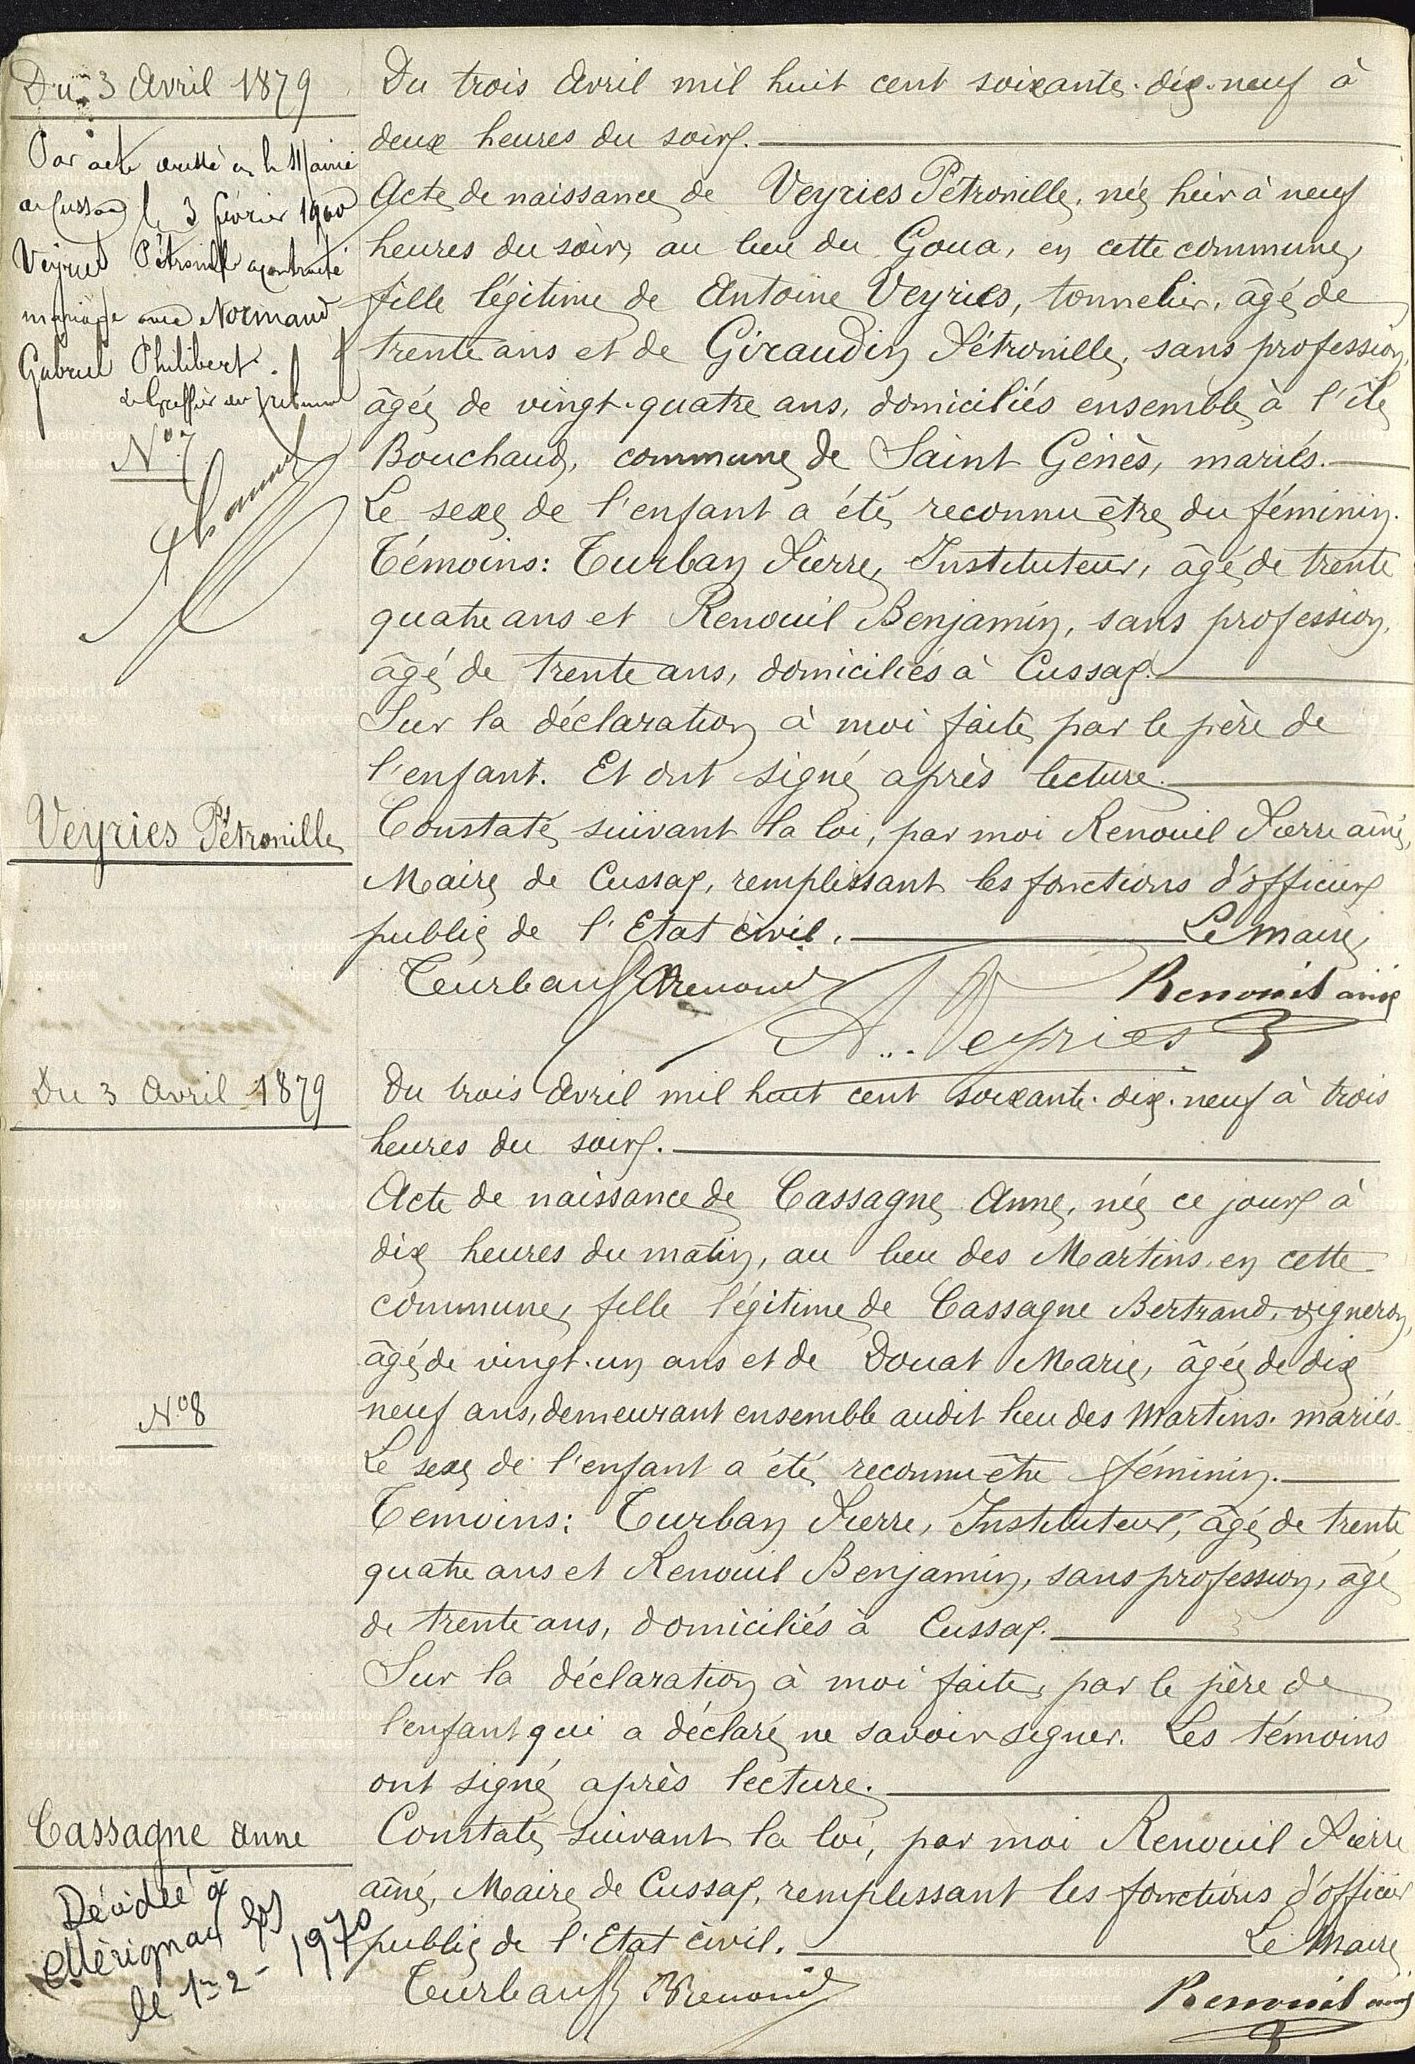 Du 3 Avril 1879
Par acte dressé en la Mairie
de Cussac le 3 février 1900
Veyries Pétronille a contracté
mariage avec Normand
Gabriel Philibert.
Le Greffier du Tribunal
N.º 7
Veyries Pétronille
Du trois Avril mil huit cent soixante-dix-neuf à
deux heures du soir.
Acte de naissance de Veyries Pétronille, née heir à neuf
heures du soir, au lieu du Goua, en cette commune,
fille légitime de Antoine Veyries, tonnelier, âgé de
trente ans et de Giraudin Pétronille, sans profession,
âgée de vingt-quatre ans, domiciliés ensemble à l'île
Bouchaud, commune de Saint Génès, mariés.
Le sexe de l'enfant a été reconnu être du féminin.
Témoins: Turban Pierre, Instituteur, âgé de trente
quatre ans et Renouil Benjamin, sans profession,
âgé de trente ans, domiciliés à Cussac.
Sur la déclaration à moi faite par le père de
l'enfant. Et ont signé après lecture.
Constaté suivant la loi, par moi Renouil Pierre aîné,
Maire de Cussac, remplissant les fonctions d'officier
public de l'Etat civil. Le Maire,
Turban B Renouil Renouil ainé
A. Veyries
Du 3 Avril 1879
N.º 8
Cassagne Anne
Décédée à
Mérignac
le 1er-2-1970
Du trois Avril mil huit cent soixante-dix-neuf à trois
heures du soir.
Acte de naissance de Cassagne Anne, née ce jour à
dix heures du matin, au lieu des Martins, en cette
commune, fille légitime de Cassagne Bertrand, vigneron,
âgé de vingt-un ans et de Douat Marie, âgée de dix
neuf ans, demeurant ensemble audit lieu des Martins. mariés.
Le sexe de l'enfant a été reconnu être féminin.
Temoins: Turban Pierre, Instituteur, âgé de trente
quatre ans et Renouil Benjamin, sans profession, âgé
de trente ans, domiciliés à Cussac.
Sur la déclaration à moi faite, par le père de
l'enfant qui a déclaré ne savoir signer. Les témoins
ont signé après lecture.
Constaté suivant la loi, par moi Renouil Pierre
aîné, Maire de Cussac, remplissant les fonctions d'officier
public de l'Etat civil. Le Maire
Turban B Renouil Renouil ainé